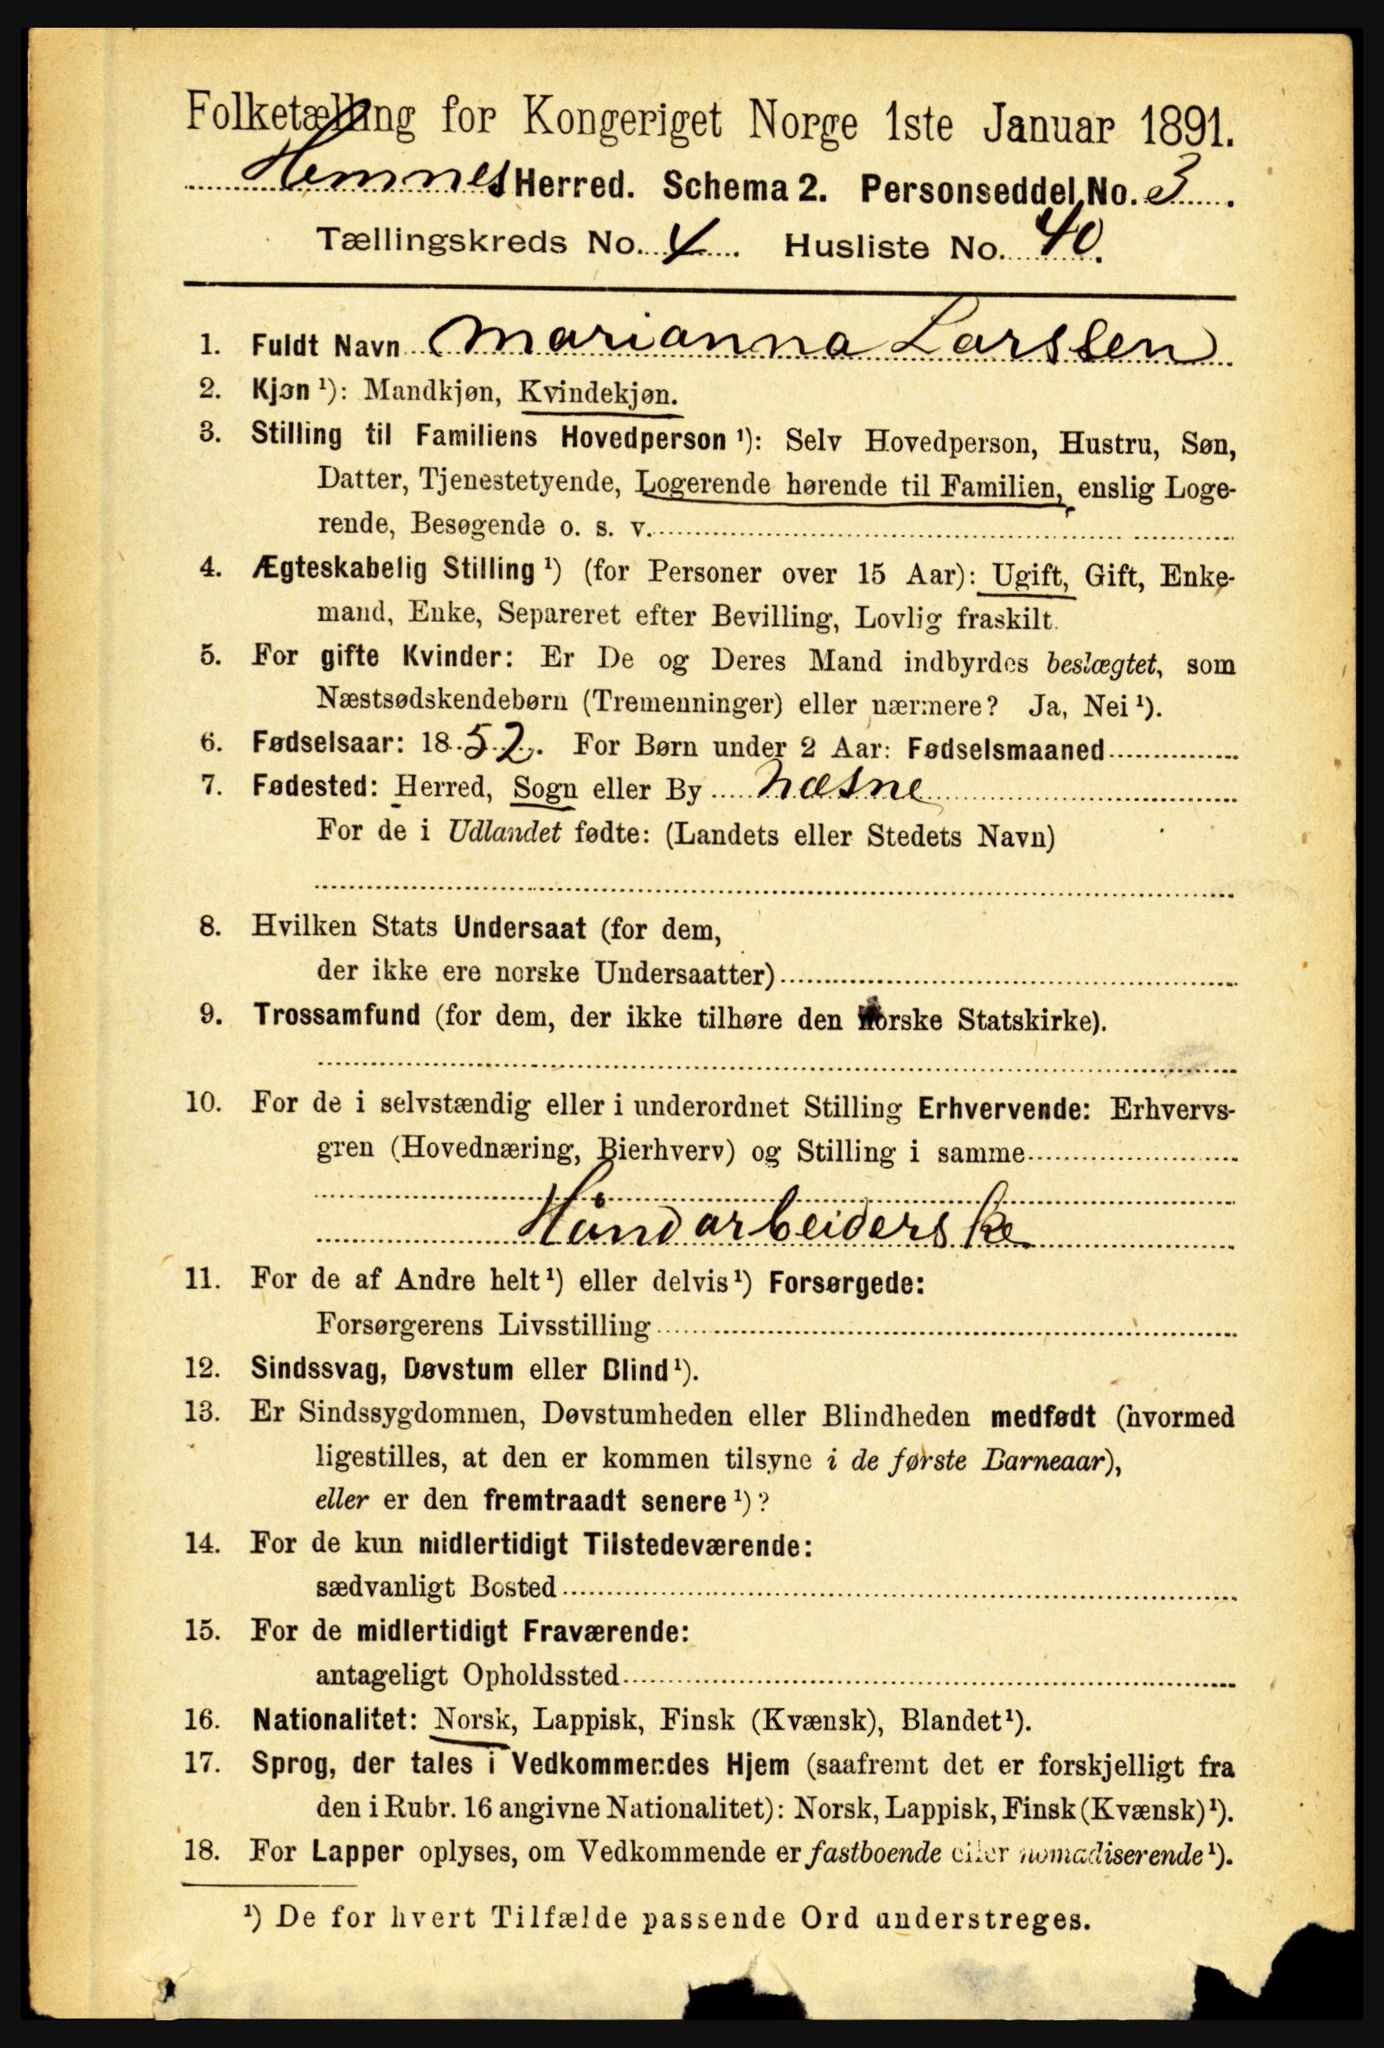 Folketælling for Kongeriget Norge 1ste Januar 1891.
Hemnes Herred. Schema 2. Personseddel No. 3.
Tællingskreds No. 4. Husliste No. 40.
1. Fuldt Navn Marianna Larssen
2. Kjøn ¹): Mandkjøn, Kvindekjøn.
3. Stilling til Familiens Hovedperson ¹): Selv Hovedperson, Hustru, Søn,
Datter, Tjenestetyende, Logerende hørende til Familien, enslig Loge-
rende, Besøgende o. s. v.
4. Ægteskabelig Stilling ¹) (for Personer over 15 Aar): Ugift, Gift, Enke-
mand, Enke, Separeret efter Bevilling, Lovlig fraskilt.
5. For gifte Kvinder: Er De og Deres Mand indbyrdes beslægtet, som
Næstsødskendebørn (Tremenninger) eller nærmere? Ja, Nei ¹).
6. Fødselsaar: 1852. For Børn under 2 Aar: Fødselsmaaned
7. Fødested: Herred, Sogn eller By Næsne
For de i Udlandet fødte: (Landets eller Stedets Navn)
8. Hvilken Stats Undersaat (for dem,
der ikke ere norske Undersaatter)
9. Trossamfund (for dem, der ikke tilhøre den Norske Statskirke).
10. For de i selvstændig eller i underordnet Stilling Erhvervende: Erhvervs-
gren (Hovednæring, Bierhverv) og Stilling i samme
Håndarbeiderske
11. For de af Andre helt ¹) eller delvis ¹) Forsørgede:
Forsørgerens Livsstilling
12. Sindssvag, Døvstum eller Blind ¹).
13. Er Sindssygdommen, Døvstumheden eller Blindheden medfødt (hvormed
ligestilles, at den er kommen tilsyne i de første Barneaar),
eller er den fremtraadt senere ¹)?
14. For de kun midlertidigt Tilstedeværende:
sædvanligt Bosted
15. For de midlertidigt Fraværende:
antageligt Opholdssted
16. Nationalitet: Norsk, Lappisk, Finsk (Kvænsk), Blandet ¹).
17. Sprog, der tales i Vedkommendes Hjem (saafremt det er forskjelligt fra
den i Rubr. 16 angivne Nationalitet): Norsk, Lappisk, Finsk (Kvænsk) ¹).
18. For Lapper oplyses, om Vedkommende er fastboende eller nomadiserende ¹).
¹) De for hvert Tilfælde passende Ord understreges.